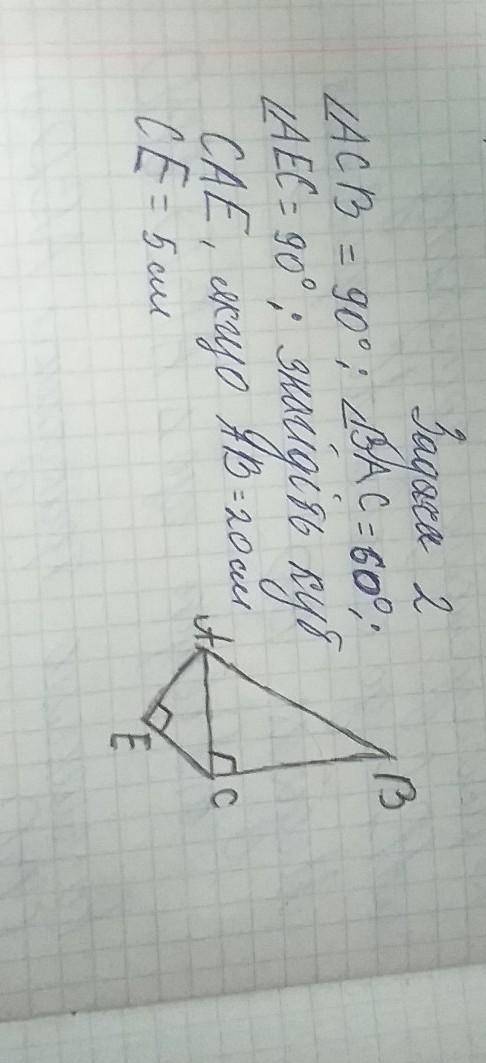 Задача 2
∠ACB = 90°; ∠BAC = 60°;
∠AEC = 90°; знайдіть кут
CAE, якщо AB = 20 см
CE = 5 см
A
B
C
E